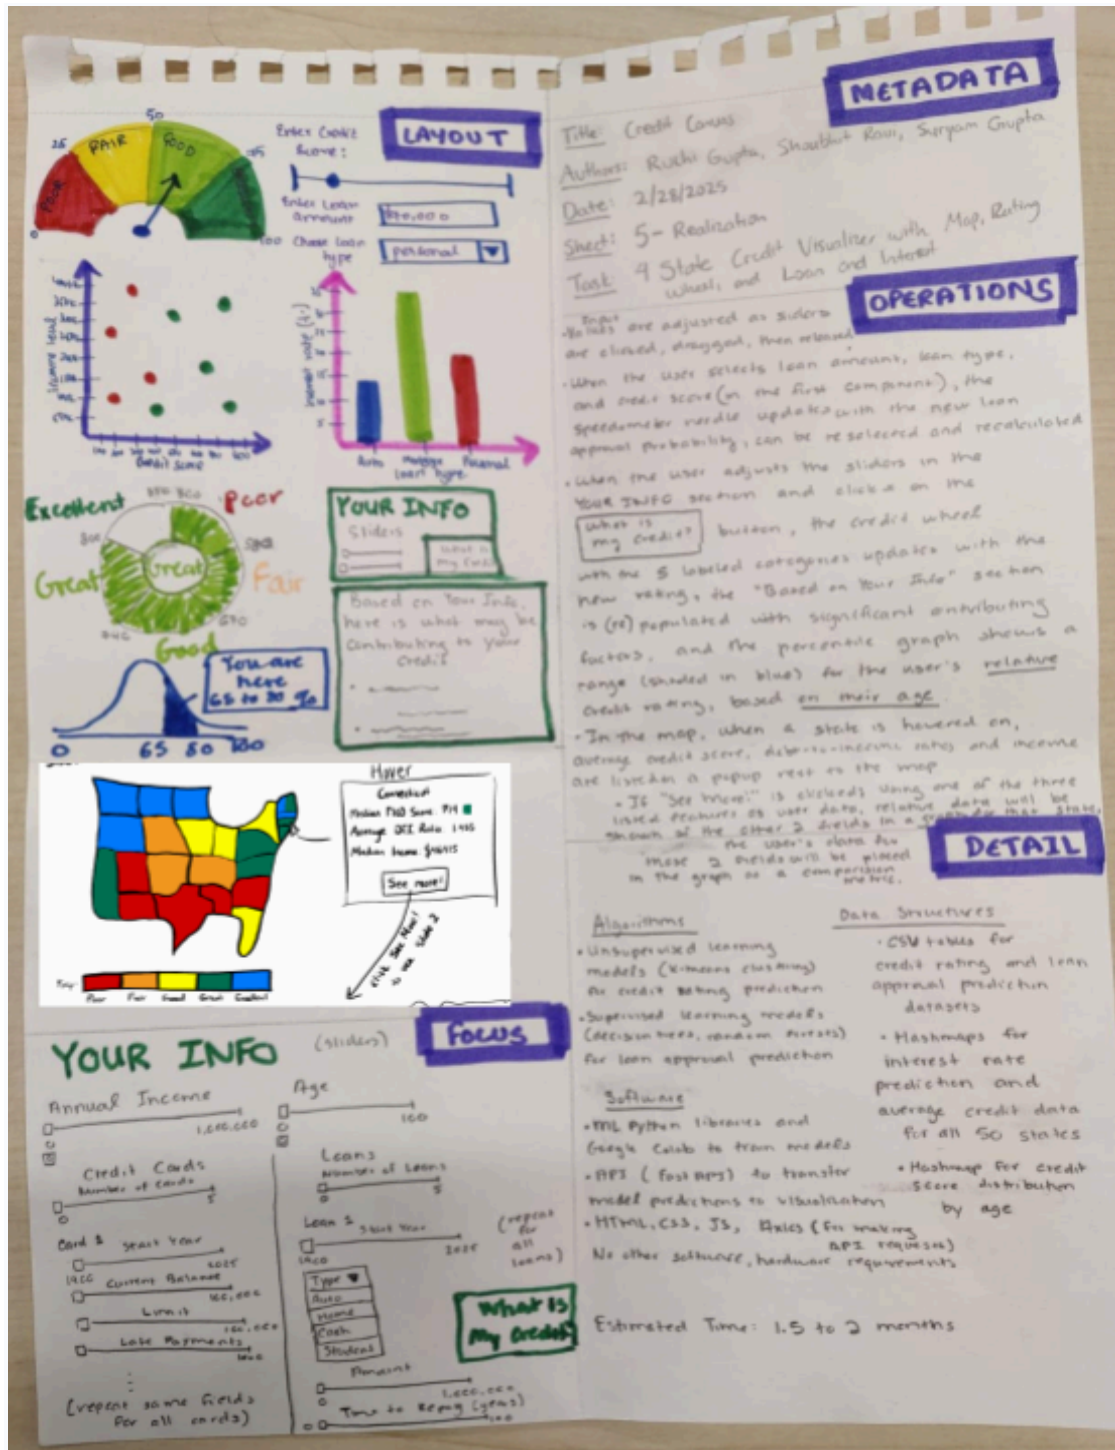 LAYOUT
50
25
75
POOR
FAIR
GOOD
0
100
Enter Credit
Score:
Enter Loan
amount
Choose loan
type
personal
Income level
Credit score
Interest rate (%)
Auto
Personal
loan type
Excellent
Poor
Great
Great
Fair
Good
YOUR INFO
Sliders
what is
my credit
Based on Your Info,
here is what may be
contributing to your
credit
You are
here
65 to 80 %
0
65
80
100
Hover
Connecticut
Median Income
See more!
click See More!
to see
Poor
Fair
Good
Great
Excellent
FOCUS
YOUR INFO
(sliders)
Annual Income
0
1,000,000
Age
0
100
Credit Cards
Number of Cards
0
5
Card 1
Start Year
1900
2025
Current Balance
100,000
Limit
100,000
Late Payments
(repeat same fields
for all cards)
Loans
Number of Loans
0
5
Loan 1
Start Year
1900
2025
(repeat
for
all
loans)
Type
Auto
Home
Cash
Student
Amount
0
1,000,000
Time to Repay (years)
0
100
What is
My Credit?
METADATA
Title: Credit Canvas
Authors: Ruchi Gupta, Gupta
Date: 2/28/2025
Sheet: 5- Realization
Task: State Credit Visualizer with Map, Rating
Wheel, and Loan and Interest
OPERATIONS
Input
are adjusted as sliders
are clicked, dragged, then released
• When the user selects loan amount, loan type,
and credit score (in the first component), the
speedometer needle updates with the new loan
approval probability, can be reselected and recalculated
• When the user adjusts the sliders in the
YOUR INFO section and clicks on the
What is
my credit?
button, the credit wheel
with the 5 labeled categories updates with the
new rating, the "Based on Your Info" section
is (re) populated with significant contributing
factors, and the percentile graph shows a
range (shaded in blue) for the user's relative
credit rating, based on their age.
• In the map, when a state is hovered on,
average credit score, debt-to-income rates and income
are listed in a popup next to the map
• If "See More!" is clicked, using one of the three
listed features of user data, relative data will be
shown of the other 2 fields in a graph for that state,
the user's data for
those 2 fields will be placed
in the graph as a comparison
metric.
DETAIL
Algorithms
• Unsupervised learning
models (K-means clustering)
for credit rating prediction
• Supervised learning models
(decision trees, random forests)
for loan approval prediction
Software
• ML Python libraries and
Google Colab to train models
• API (Fast API) to transfer
model predictions to visualization
• HTML, CSS, JS, Axios (for making
API requests)
No other software, hardware requirements
Data Structures
• CSV tables for
credit rating and loan
approval prediction
datasets
• Hashmaps for
interest rate
prediction and
average credit data
for all 50 states
• Hashmap for credit
score distribution
by age
Estimated Time: 1.5 to 2 months